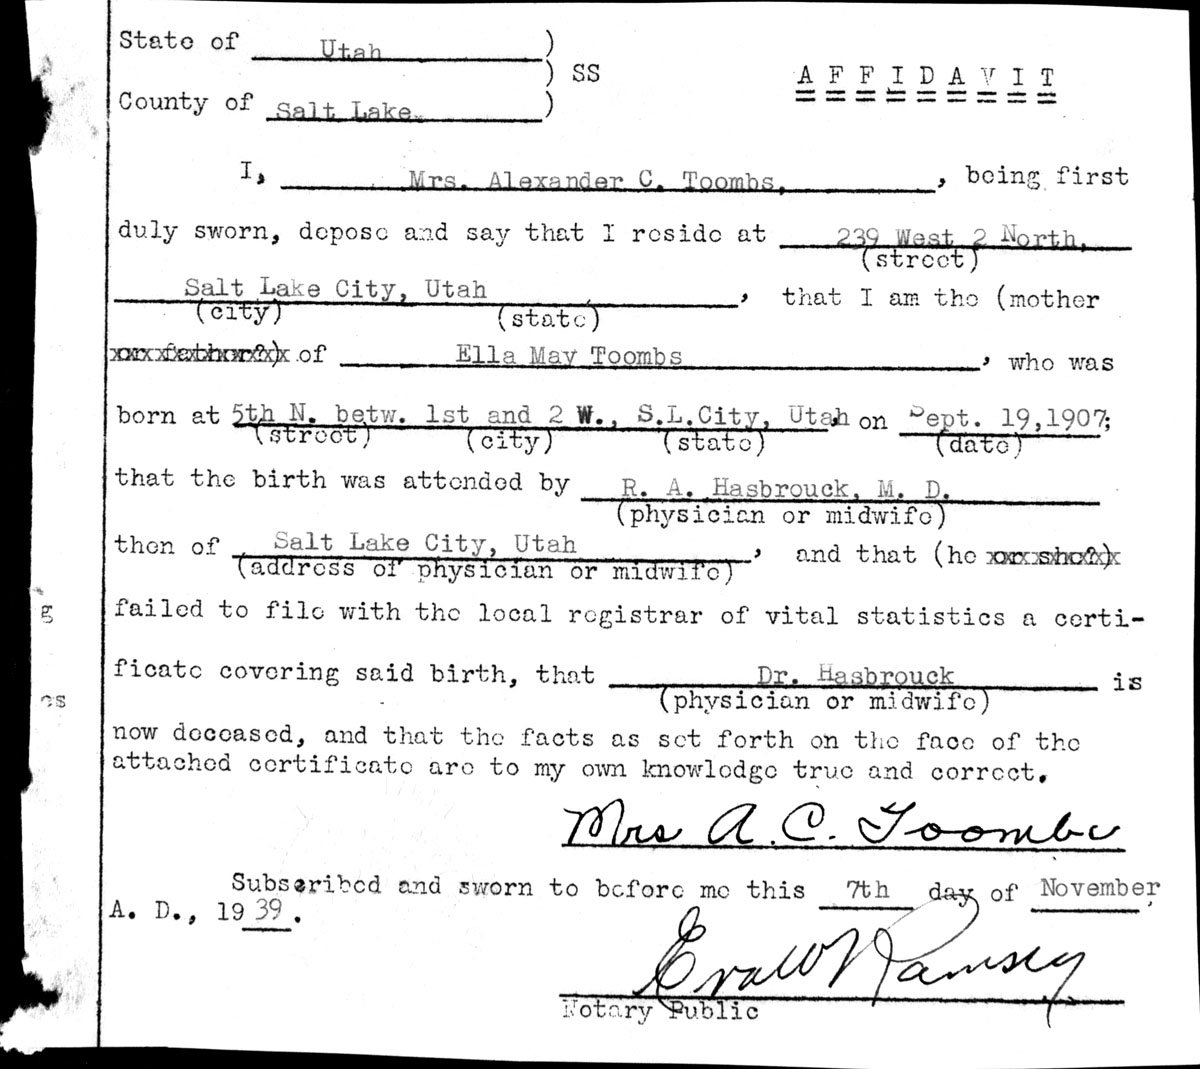 State of Utah )
) SS AFFIDAVIT
County of Salt Lake. )
I, Mrs. Alexander C. Toombs, , being first
duly sworn, depose and say that I reside at 239 West 2 North,
(street)
Salt Lake City, Utah , that I am the (mother
(city) (state)
xxr xfatherx?x)x of Ella May Toombs , who was
born at 5th N. betw. 1st and 2 W., S.L.City, Utah, on Sept. 19,1907;
(street) (city) (state) (date)
that the birth was attended by R. A. Hasbrouck, M. D.
(physician or midwife)
then of Salt Lake City, Utah , and that (he xxr xshex?x)x
(address of physician or midwife)
g failed to file with the local registrar of vital statistics a certi-
ficate covering said birth, that Dr. Hasbrouck is
es (physician or midwife)
now deceased, and that the facts as set forth on the face of the
attached certificate are to my own knowledge true and correct.
Mrs A. C. Toombs
Subscribed and sworn to before me this 7th day of November,
A. D., 1939.
Eva W Ramsey
Notary Public